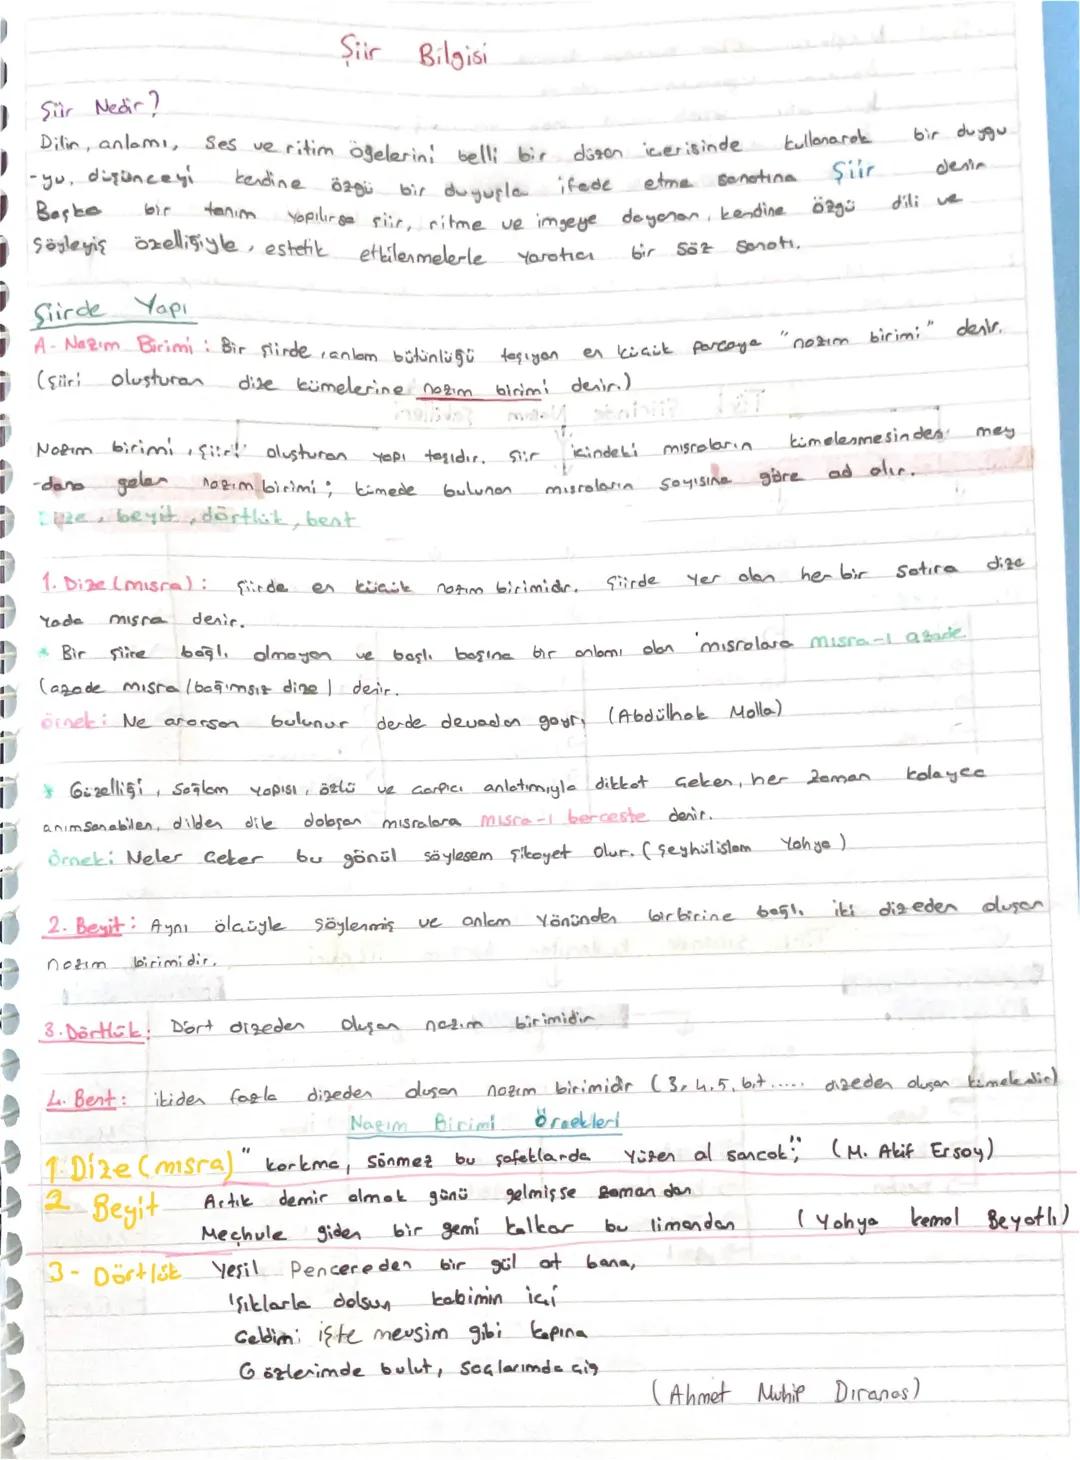 Şiir Bilgisi
Şiir Nedir?
Dilin, anlamı, Ses ve ritim ögelerini belli bir düzen icerisinde kullanarak bir duygu
-yu, düşünceyi kendine özgü bir duyuşla ifade etme sanatına Şiir denir
Başka bir tanım yapılırsa şiir, ritme ve imgeye dayanan, kendine özgü dili ve
Söyleyiş özelliğiyle, estetik etkilenmelerle Yaratıcı bir söz Sanatı.
Şiirde Yapı
A- Nazım Birimi : Bir şiirde, anlam bütünlüğü taşıyan en küçük parcaya "nazım birimi" denir.
(şiiri oluşturan dize kümelerine nazım birimi denir.)
Nazım birimi, şiiri oluşturan yapı taşıdır. Şiir içindeki mısraların kümelenmesinden mey
-dana gelen nazım birimi; kümede bulunan mısraların sayısına göre ad alır.
Dize, beyit, dörtlük, bent
1. Dize (mısra) : şiirde en küçük nazım birimidir. Şiirde Yer alan her bir satıra dize
Yada mısra denir.
* Bir şiire bağlı olmayan ve başlı başına bir anlamı olan mısralara mısra-ı azade
(azade mısra / bağımsız dize) denir.
örnek: Ne ararsan bulunur derde devadan gayrı (Abdülhak Molla)
* Güzelliği, Sağlam yapısı, özlü ve çarpıcı anlatımıyla dikkat çeken, her zaman kolayca
anımsanabilen, dilden dile dolaşan mısralara mısra-ı berceste denir.
Örnek: Neler Çeker bu gönül söylesem şikayet olur. (şeyhülislam Yahya)
2. Beyit : Aynı ölçüyle söylenmiş ve anlam Yönünden birbirine bağlı iki dizeden oluşan
nazım birimidir.
3. Dörtlük: Dört dizeden Oluşan nazım birimidir
4. Bent: ikiden fazla dizeden oluşan nazım birimidir (3, 4, 5, 6, 7..... dizeden oluşan kümelerdir)
Nazım Birimi Örnekleri
1. Dize (mısra) "korkma, Sönmez bu şafaklarda Yüzen al sancak"; (M. Akif Ersoy)
2 Beyit Artık demir almak günü gelmişse zamandan
Meçhule giden bir gemi kalkar bu limandan (Yahya kemal Beyatlı)
3- Dörtlük Yeşil Pencereden bir gül at bana,
Işıklarla dolsun kalbimin içi
Geldim işte mevsim gibi kapına
Gözlerimde bulut, saçlarımda çiğ
(Ahmet Muhip Dıranas)